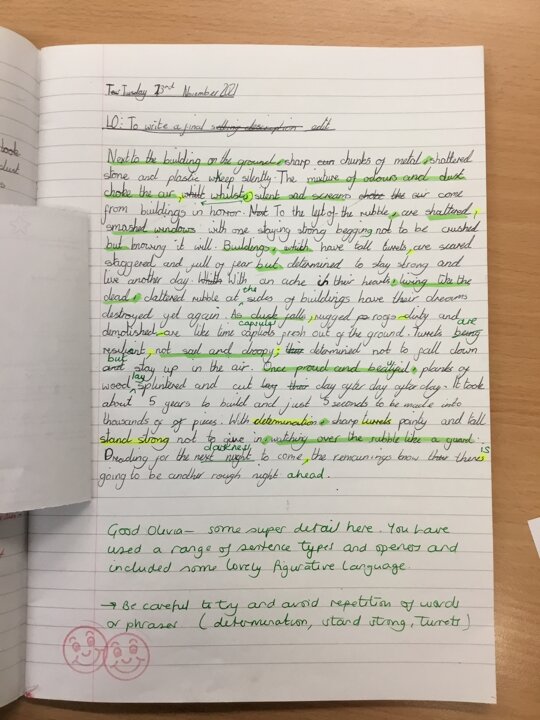 Tuesday 23rd November 2021
LO: To write a final setting description edit
Next to the building on the ground, sharp chunks of metal, shattered
stone and plastic weep silently. The mixture of odours and dust
choke the air, whilst silent sad screams choke the air come
from buildings in horror. Next To the left of the rubble, are shattered,
smashed windows with one staying strong begging not to be crushed
but knowing it will. Buildings, which have tall turrets, are scared
staggered and full of fear but determined to stay strong and
live another day. With an ache in their hearts, living like the
dead, clattered rubble at the sides of buildings have their dreams
destroyed yet again. As dusk falls, rugged rags dusty and
demolished, are like time capsules fresh out of the ground. Turrets are being
resilient, not sad and droopy, determined not to fall down
and but stay up in the air. Once proud and beatiful, planks of
wood lay splintered and cut day after day after day. It took
about 5 years to build and just 5 seconds to be made into
thousands of pieces. With determination, sharp turrets pointy and tall
stand strong not to give in, watching over the rubble like a guard.
Dreading for the next night darkness to come, the remainings know there is
going to be another rough night ahead.
Good Olivia - some super detail here. You have
used a range of sentence types and openers and
included some lovely figurative language.
→ Be careful to try and avoid repetition of words
or phrases (determination, stand strong, turrets)